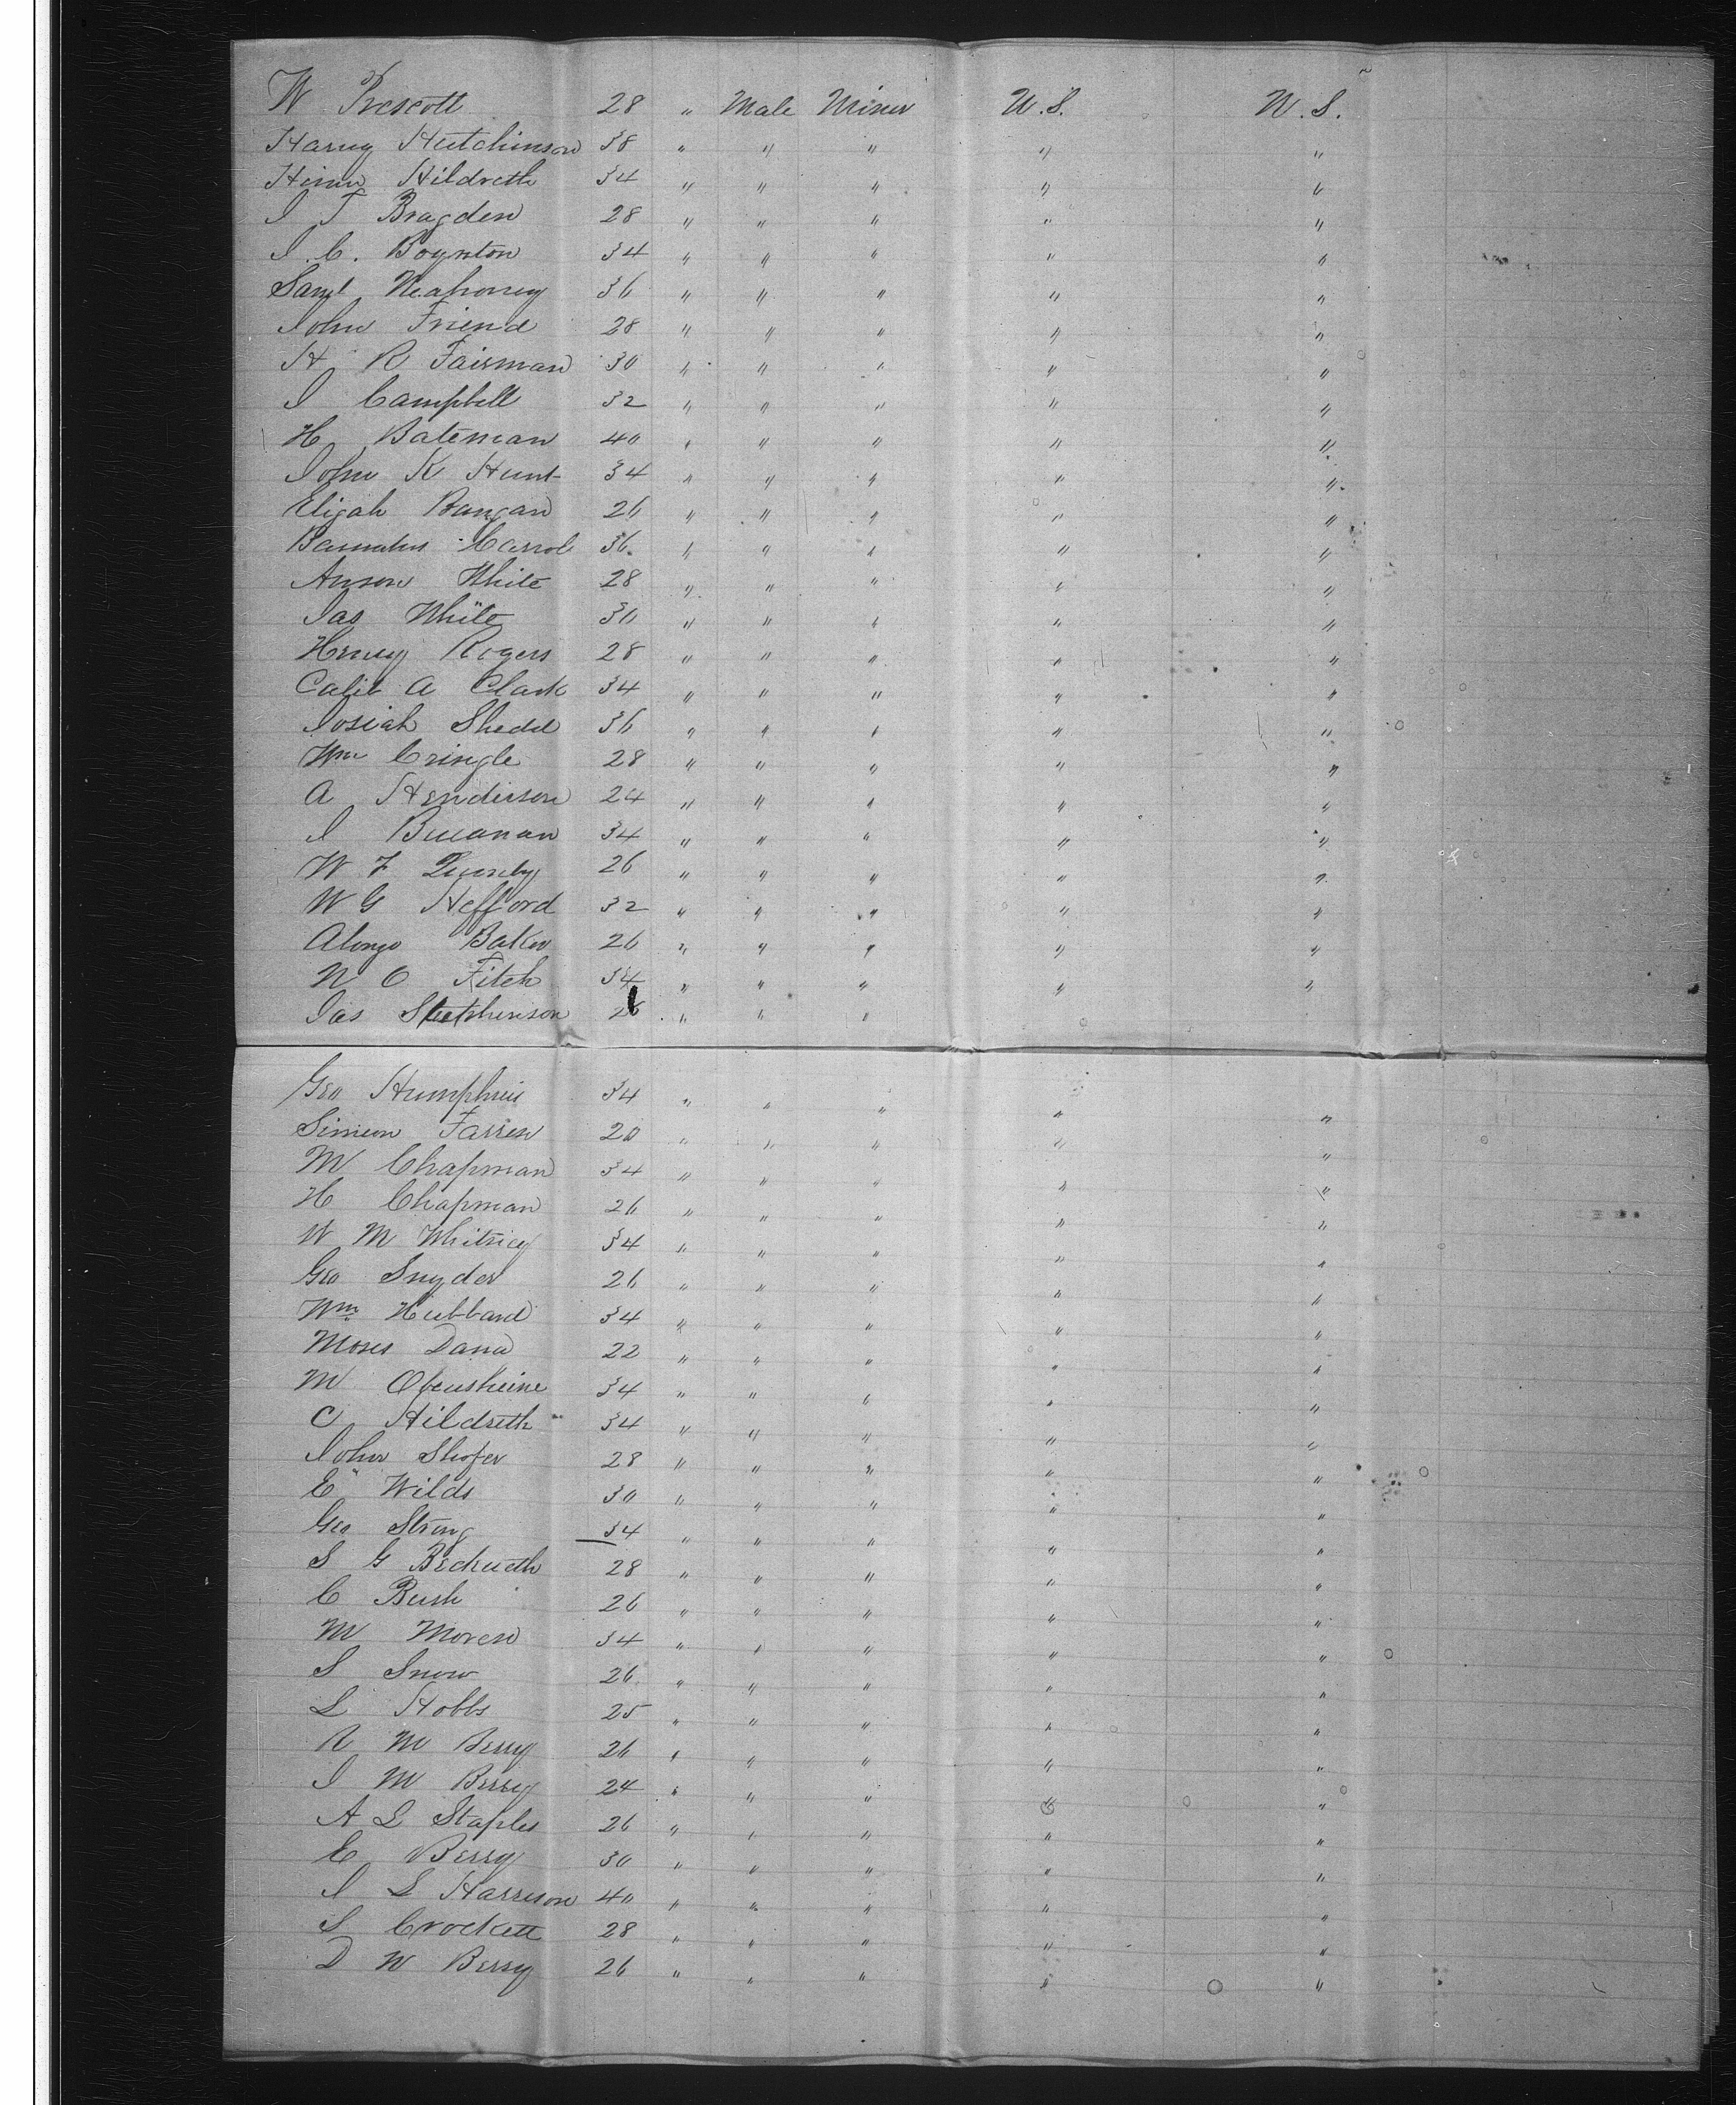 W Prescott 28 " Male Miner U.S. U.S.
Harvy Hutchinson 38 " " " " "
Hiram Hildreth 34 " " " " "
J T Bragden 28 " " " " "
J. C. Boynton 34 " " " " "
Saml 36 " " " " "
John Friend 28 " " " " "
H R Fairman 30 " " " " "
J Campbell 32 " " " " "
H Bateman 40 " " " " "
John K Hunt 34 " " " " "
Elijah 26 " " " " "
Carrol 36 " " " " "
Anson White 28 " " " " "
Jas White 30 " " " " "
Henry Rogers 28 " " " " "
Calib A Clark 34 " " " " "
Josiah Shedd 36 " " " " "
Wm Cringle 28 " " " " "
A Henderson 24 " " " " "
J Bucanan 34 " " " " "
W F 26 " " " " "
W G Hefford 32 " " " " "
Alonzo Baker 26 " " " " "
N O Fitch 34 " " " " "
Jas Stetphenson 26 " " "
Geo Humphries 34 " " " " "
Simeon Farren 20 " " " " "
M Chapman 34 " " " " "
H Chapman 26 " " " " "
W M Whitney 34 " " " " "
Geo Snyder 26 " " " " "
Wm Hubbard 34 " " " " "
Moses Dana 22 " " " " "
M 34 " " " " "
C Hildreth 34 " " " " "
John Shofer 28 " " " " "
E Wilds 30 " " " " "
Geo Strong 34 " " " " "
S G Beckwith 28 " " " " "
C Bush 26 " " " " "
M Moren 34 " " " " "
S Snow 26 " " " " "
L Hobbs 25 " " " " "
R M Berry 26 " " " " "
J M Berry 24 " " " " "
A L Staples 26 " " " " "
E Berry 30 " " " " "
J L Harrison 40 " " " " "
S Crockett 28 " " " " "
D W Berry 26 " " " " "